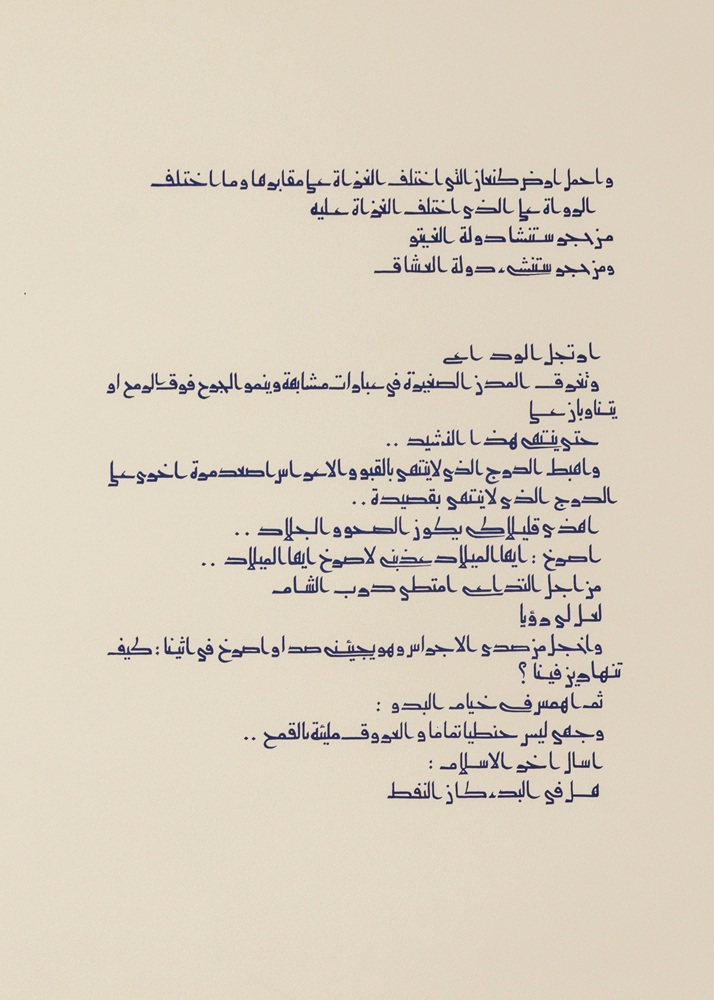 واحمل ارض كنعان التي اختلف الغزاة على مقابرها وما اختلف
الرواة على الذي اختلف الغزاة عليه
من حجر ستنشا دولة الغيتو
ومن حجر سننشىء دولة العشاق
ارتجل الوداع
وتغرق المدن الصغيرة في عبارات مشابهة وينمو الجرح فوق الرمح او
يتناوبان علي
حتى ينتهي هذا النشيد ..
واهبط الدرج الذي لاينتهي بالقبو والاعراس اصعد مرة اخرى على
الدرج الذي لاينتهي بقصيدة ..
اهذي قليلا كي يكون الصحو والجلاد ..
اصرخ : ايها الميلاد عذبني لاصرخ ايها الميلاد ..
من اجل التداعي امتطي درب الشام
لعل لي رؤيا
واخجل من صدى الاجراس وهو يجيئني صدا واصرخ في اثينا : كيف
تنهارين فينا ؟
ثم اهمس في خيام البدو :
وجهي ليس حنطيا تماما والعروق مليئة بالقمح ..
اسال اخر الاسلام :
هل في البدء كان النفط